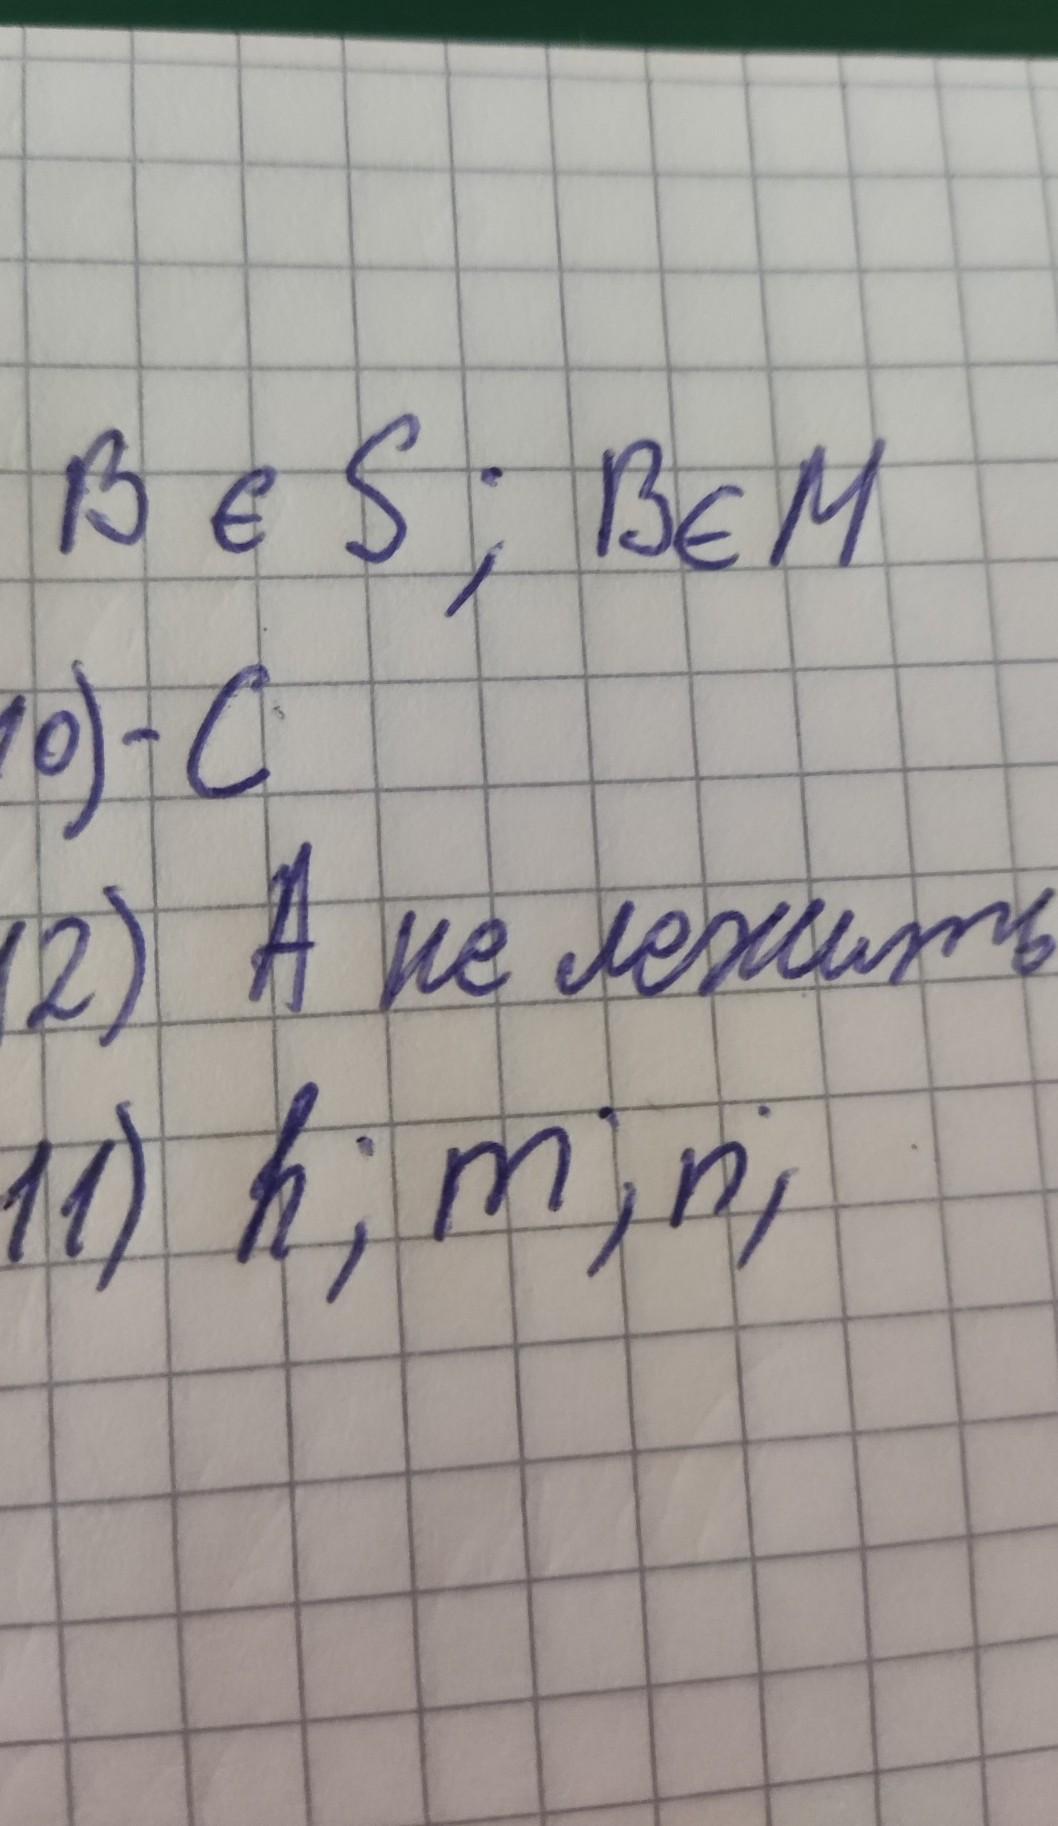 B ∈ S; B ∈ M
10) - C
12) А не лежить
11) h; m; n;